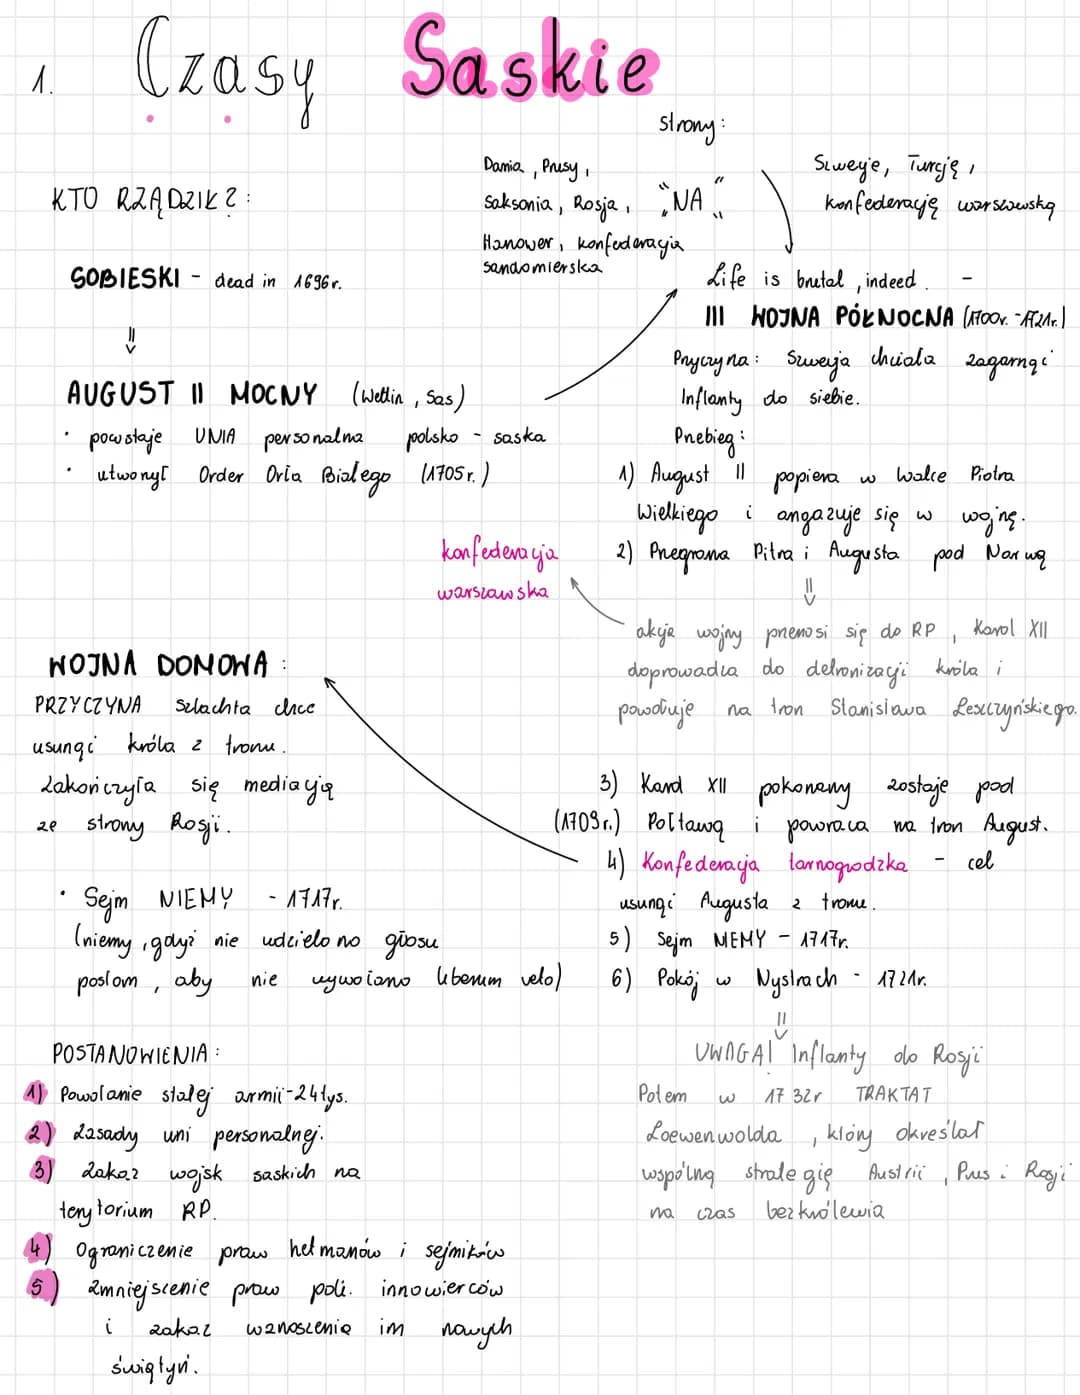 1. Czasy Saskie
strony:
Dania, Prusy,
Saksonia, Rosja,
Hanower, konfederacja
sandomierska
"NA"
Szwecję, Turcję,
konfederację warszawską
KTO RZĄDZIŁ?:
SOBIESKI - dead in 1696r.
AUGUST II MOCNY (Wettin, Sas)
• powstaje UNIA personalna polsko - saska
• utworzył Order Orła Białego (1705r.)
Life is brutal, indeed. -
III WOJNA PÓŁNOCNA (1700r.-1721r.)
Przyczyna: Szwecja chciała zagarnąć
Inflanty do siebie.
Przebieg:
1) August II popiera w walce Piotra
Wielkiego i angażuje się w wojnę.
2) Przegrana Pitra i Augusta pod Narwą
akcja wojny przenosi się do RP, Karol XII
doprowadza do detronizacji króla i
powołuje na tron Stanisława Leszczyńskiego.
konfederacja
warszawska
3) Karol XII pokonany zostaje pod
(1709r.) Połtawą i powraca na tron August.
4) Konfederacja tarnogrodzka - cel
usunąć Augusta z tronu.
5) Sejm NIEMY - 1717r.
6) Pokój w Nystrach - 1721r.
UWAGA! Inflanty do Rosji
Potem w 1732r TRAKTAT
Loewenwolda, który określał
wspólną strategię Austrii, Prus i Rosji
na czas bezkrólewia
WOJNA DOMOWA:
PRZYCZYNA Szlachta chce
usunąć króla z tronu.
Zakończyła się mediacją
ze strony Rosji.
• Sejm NIEMY - 1717r.
(niemy, gdyż nie udzielono głosu
posłom, aby nie wywołano liberum veto)
POSTANOWIENIA:
1) Powołanie stałej armii-24tys.
2) Zasady uni personalnej.
3) Zakaz wojsk saskich na
terytorium RP.
4) Ograniczenie praw hetmanów i sejmików
5) Zmniejszenie praw poli. innowierców
i zakaz wznoszenia im nowych
świątyń.